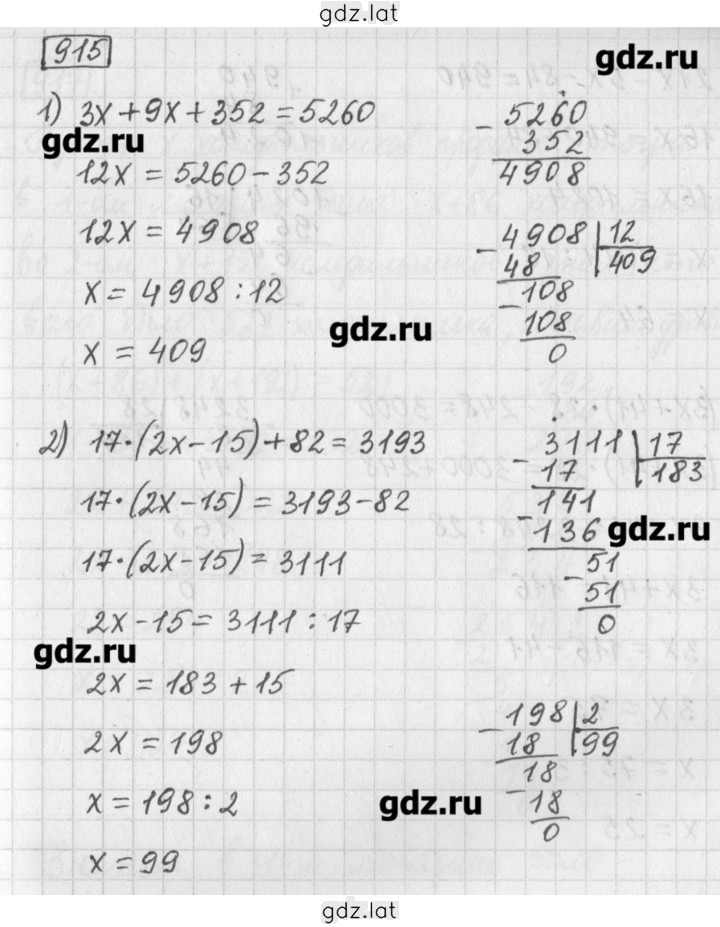 gdz.lat
915
gdz.ru
1) 3x + 9x + 352 = 5260
gdz.ru
12x = 5260 - 352
12x = 4908
x = 4908 : 12
gdz.ru
x = 409
- 5260
352
4908
- 4908 | 12
48 | 409
- 108
108
0
2) 17·(2x - 15) + 82 = 3193
17·(2x - 15) = 3193 - 82
17·(2x - 15) = 3111
2x - 15 = 3111 : 17
gdz.ru
2x = 183 + 15
2x = 198
x = 198 : 2
x = 99
- 3111 | 17
17 | 183
- 141
136
gdz.ru
- 51
51
0
- 198 | 2
18 | 99
- 18
18
0
gdz.ru
gdz.lat